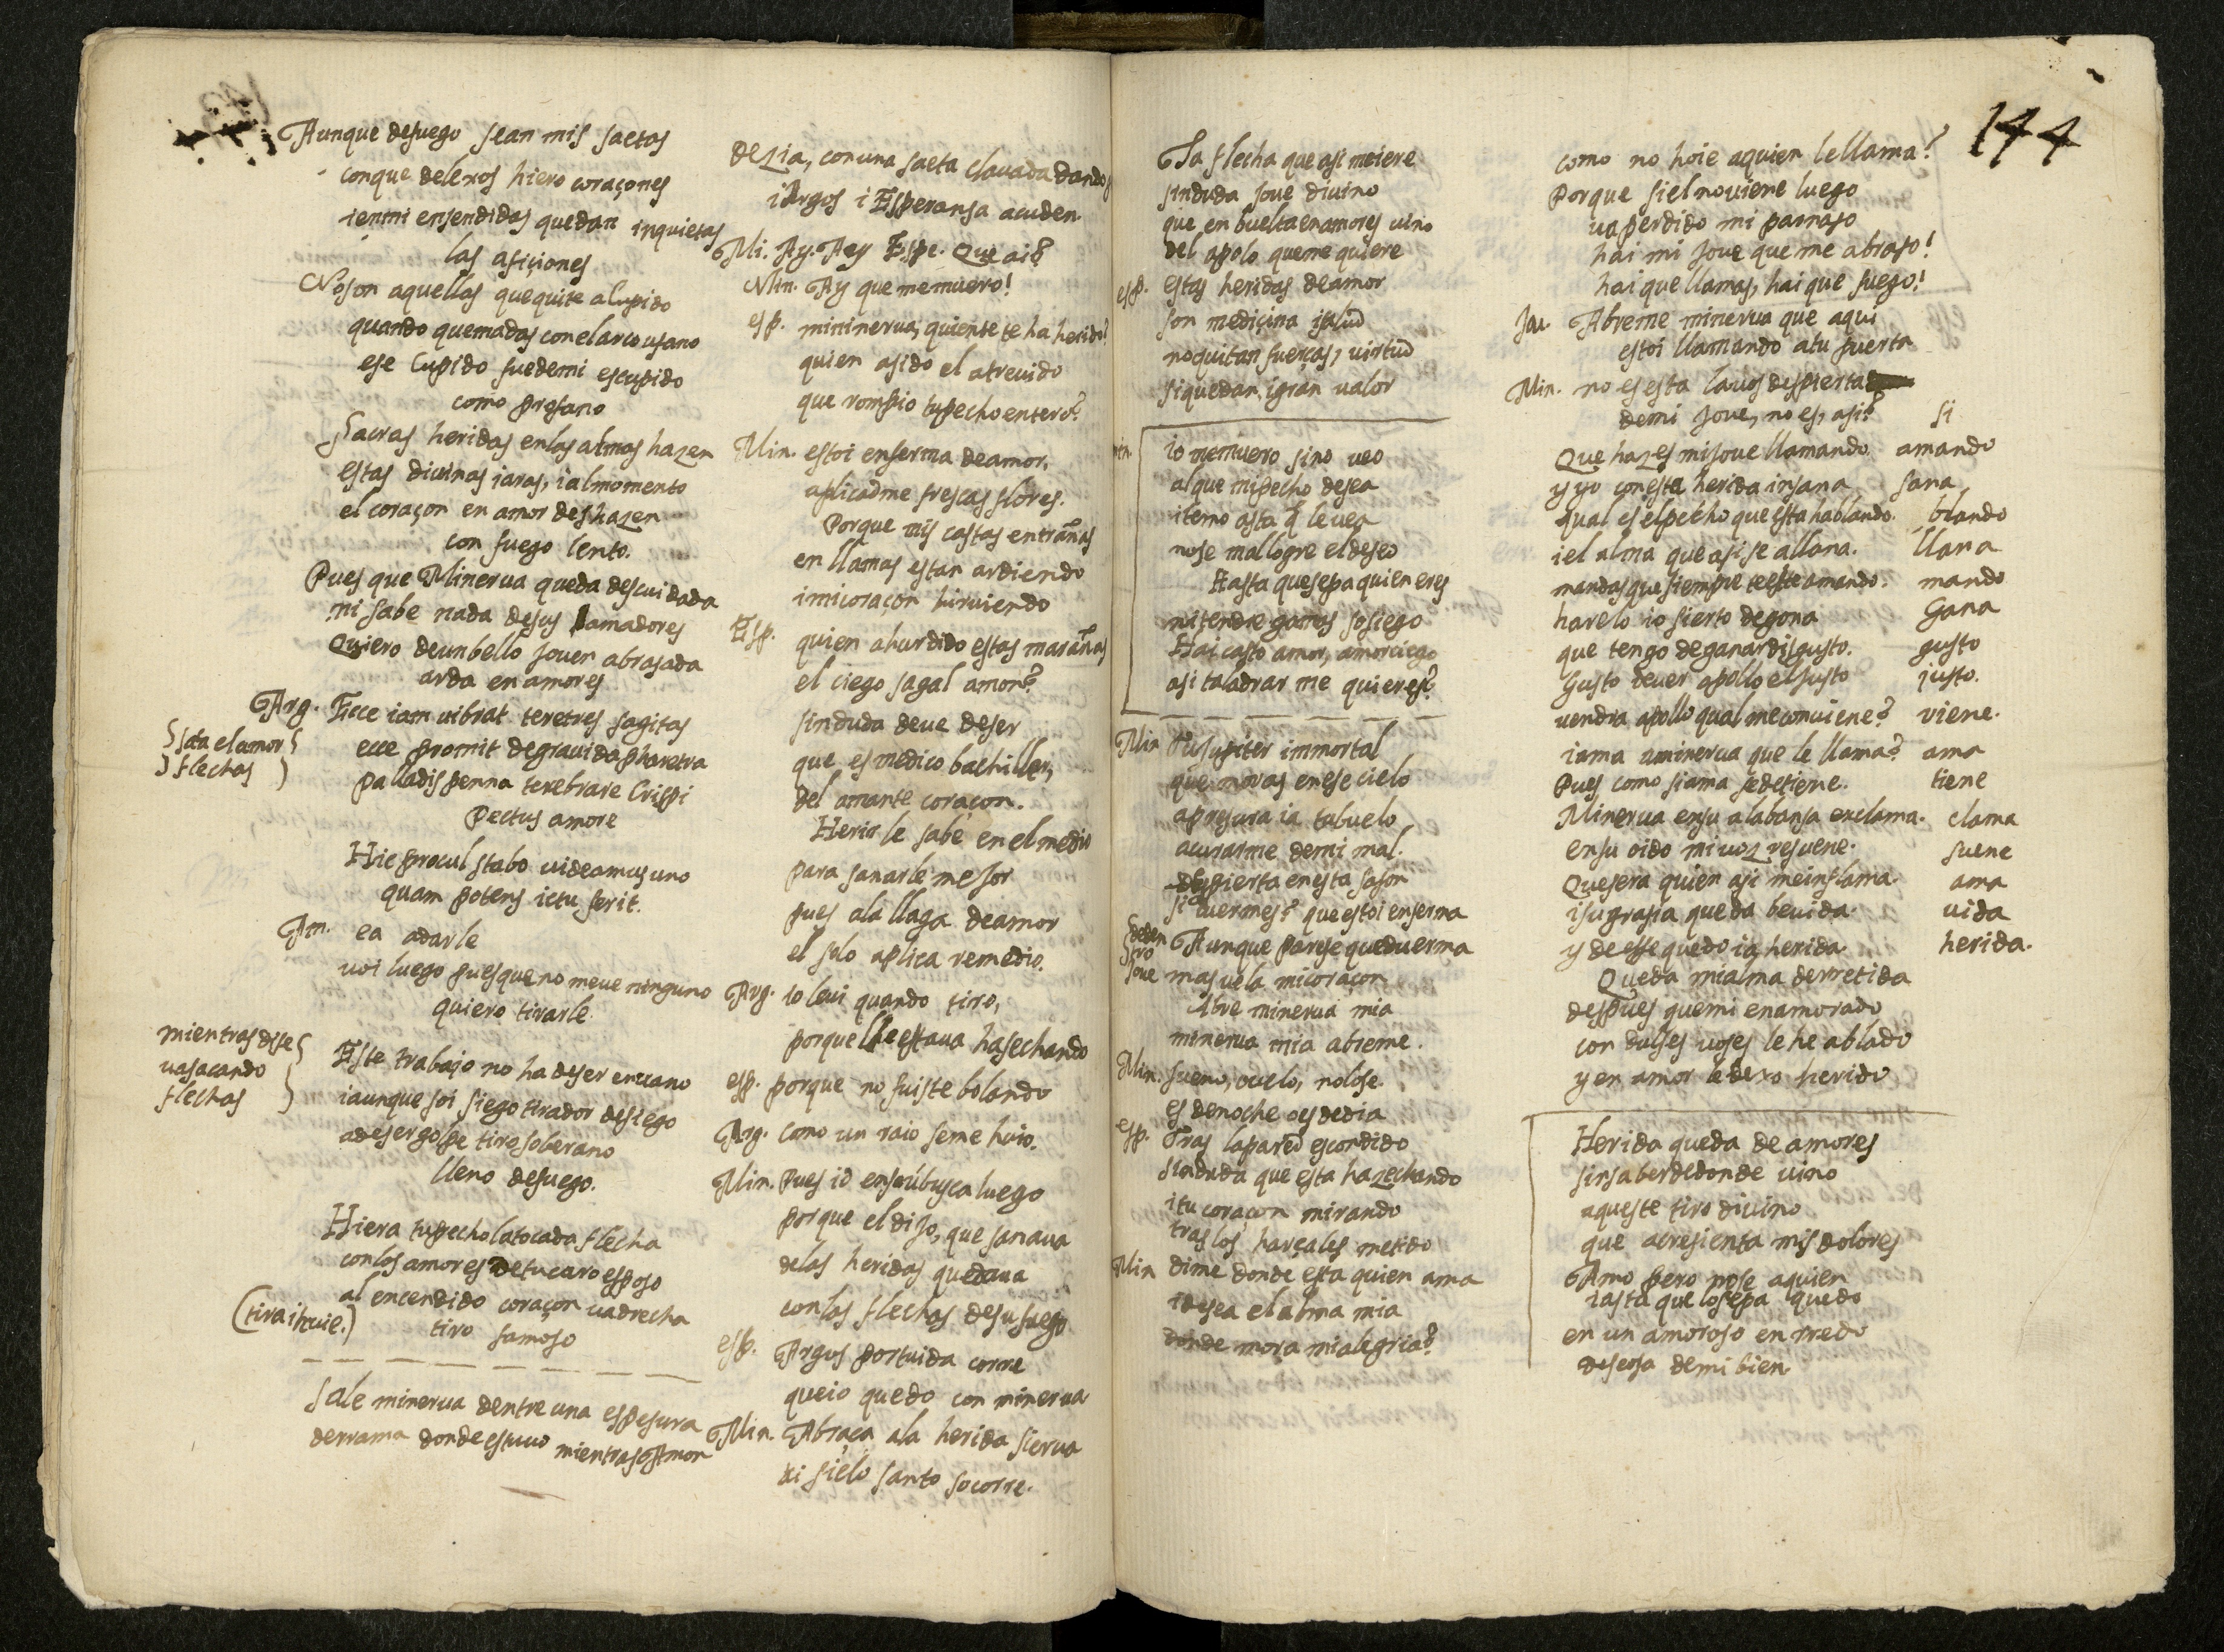 Aunque defuego sean mis saetas
conque delexos hiero coraçones
ienmi ensendidas quedan inquietas
las afiçiones
No son aquellas quequite alupido
quando quemadas con el arco usano
ese Cupido fuedemi escupido
como profano
Sacras heridas enlas almas hazen
estas divinas iaras, ialmomento
el coraçon en amor deshazen
con fuego lento.
Pues que Minerua queda descuidada
ni sabe nada desus amadores
Quiero deunbello Jouen abrasada
arda en amores
Arg. Ecce iam uibrat teretres sagitas
Sata el amor
flechas
ecce promit degrauida pharetra
palladis penna terebrare Crispi
Pectus amore
Hic procul stabo uideamus uno
quam potens ictu ferit.
Am. ea adarle
uoi luego puesque no meue ninguno
quiero tirarle.
mientras dise
uasacando
flechas
Este trabajo no ha deser enuano
iaunque soi siego tirador desiego
adesergolpe tiro soberano
lleno defuego.
Hiera tupecho latocada flecha
conlos amores detucaro esposo
al encendido coraçon uadrecha
(tira ihuie.)
tiro famoso
Sale minerua dentre una espesura
derrama donde estuuo mientras Amor
dezia, conuna saeta clauada dando
i Argos i Esperansa acuden
Mi. Ay. Aey Espe. Que ai?
Min. Ay que memuero!
esp. mi minerua, quiente te ha herido?
quien asido el atreuido
que rompio tupecho entero?
Min. estoi enferma deamor,
aplicadme frescas flores.
Porque mis castas entrañas
en llamas estan ardiendo
imicoraçon hiruiendo
Esp. quien ahurdido estas marañas
el ciego sagal amor?
sinduda deue deser
que es medico bachiller,
del amante coraçon.
Herirle sabe en el medio
para sanarle mejor
pues ala llaga deamor
el solo aplica remedio.
Arg. io leui quando tiro,
porque lle estaua hasechando
esp. porque no fuiste bolando
Arg. Como un raio seme huio.
Min. Pues id ensubusca luego
porque el dijo, que sanaua
delas heridas quedaua
conlas flechas desufuego
esp. Argos portuida corre
queio quedo con minerua
Min. Abraça ala herida sierua
ai sielo santo socorre.
144
La flecha que asi meiere
sinduda Joue diuino
que en bueltaenamores uino
del apolo queme quiere
esp. estas heridas deamor
son mediçina isalud
noquitan fuerças, uirtud
siquedan, igran valor
min. io memuero sino ueo
alque mipecho desea
itemo asta q̃ levea
nose mallogre eldeseo
Hasta quesepa quien eres
nitendre sosiego
Hai casto amor, amorciego
asi taladrar me quieres?
Min Tu Jupiter immortal
que moras enese cielo
apresura ia tubuelo
acurarme demi mal.
despierta enesta sason
si duermes? que estoi enferma
deden
tro
Joue
Aunque parese queduerma
mas uela micoraçon
Abre minerua mia
minerua mia abreme.
Min. sueno, ouelo, nolose.
es denoche oesdedia
esp. Tras lapared escondido
sinduda que esta hazechando
itu coraçon mirando
tras los harçales metido
Min dime donde esta quien ama
idesea el alma mia
donde mora mialegria?
como no hoie aquien lellama?
Porque si el nouiene luego
uaperdido mi parnaso
hai mi Joue que me abraso!
hai que llamas, hai que fuego!
Jou. Abreme minerua que aqui
estoi llamando atu puerta
Min. no es esta lauos despierta
demi Joue, no es, asi? si
Que hazes mi Joue llamando. amando
y yo conesta herida insana sana
qual es elpecho que esta hablando. blando
iel alma que asi se allana. llana
mandas que siempre teeste amando. mando
harelo io sierto degana Gana
que tengo deganardisgusto. gusto
Gusto dever apollo elJusto justo.
uendra apollo qual meconuiene? viene.
iama aminerua que le llama? ama
Pues como siama sedetiene. tiene
Minerua ensu alabansa exclama. clama
ensu oido mi uoz resuene. suene
Quesera quien asi meinflama. ama
isugrasia queda beuida uida
y de esse quedo ia herida herida.
Queda mialma derretida
despues quemi enamorado
con dulses uoses le he ablado
y en amor ledexo herido
Herida queda de amores
sinsaberdedonde uino
aqueste tiro diuino
que acresienta mis dolores
Amo pero nose aquien
iasta que losepa quedo
en un amoroso enrredo
deseosa demi bien.